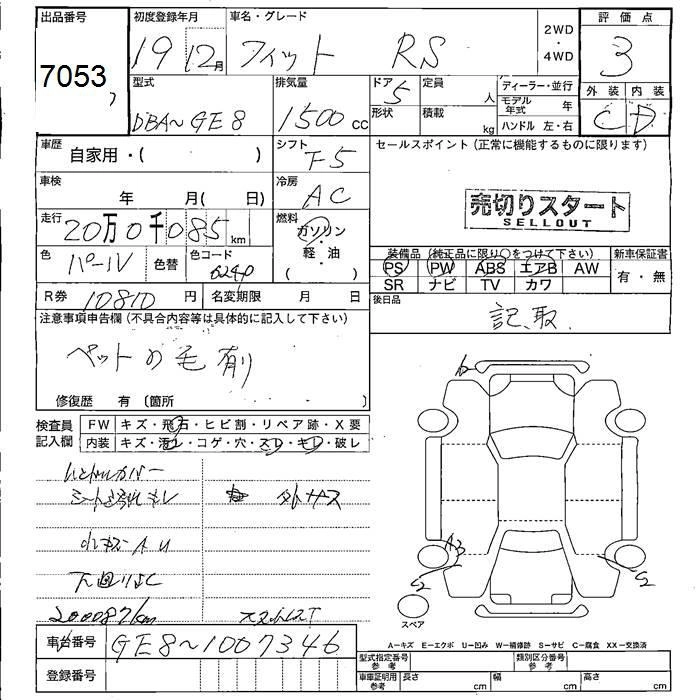 出品番号 初度登録年月 車名・グレード 2WD ・ 4WD 評価点
7053 19年12月 フィット RS 3
型式 排気量 ドア 5 定員 人 ディーラー・並行 外装 内装
DBA~GE8 1500cc 形状 積載 kg モデル年式 年 C D
ハンドル 左・右
車歴 自家用・( ) シフト F5 セールスポイント (正常に機能するものに限ります)
車検 年 月( 日) 冷房 AC
売切りスタート
SELLOUT
走行 20万0千085km 燃料 ガソリン・軽・油 ( )
色 パール 色替 色コード
装備品 (純正品に限り○をつけて下さい) 新車保証書
PS PW ABS エアB AW 有・無
SR ナビ TV カワ
R券 10810円 名変期限 月 日 後日品
記、取
注意事項申告欄 (不具合内容等は具体的に記入して下さい)
ペットの毛有り
修復歴 有 〔箇所 〕
検査員記入欄 FW キズ・飛石・ヒビ割・リペア跡・X要
内装 キズ・汚レ・コゲ・穴・スレ・キレ・破レ
ハンドルカバー
小キズAU
下廻りSC
200087km
A3
S2 S2
スペア
A−キズ E−エクボ U−凹み W−補修跡 S−サビ C−腐食 XX−交換済
車台番号 GE8~1007346
登録番号
型式指定番号 参考 類別区分番号 参考
車庫証明用 参考 長さ cm 幅 cm 高さ cm